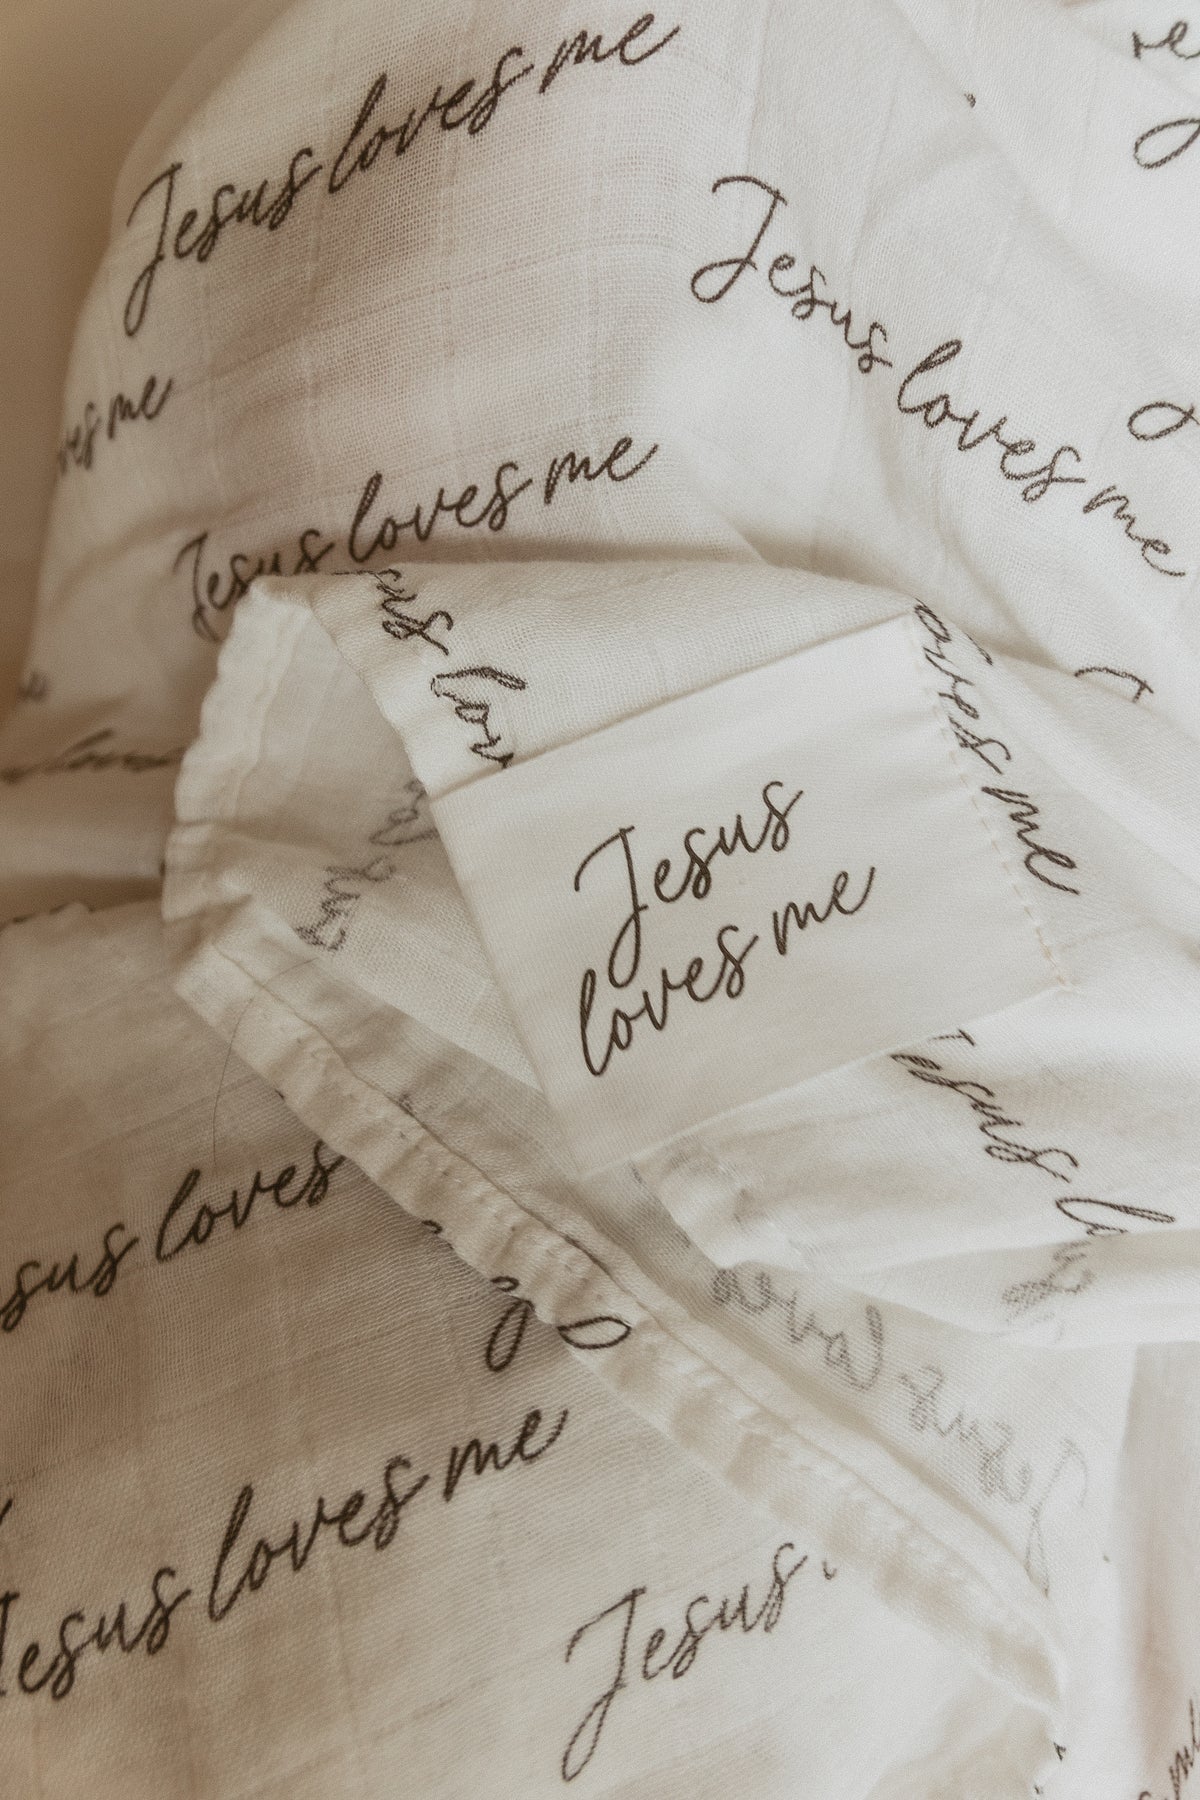 Jesus loves me
Jesus loves me
me
Jesus loves me
loves me
Jesus
loves me
Jesus
loves
Jesus loves me
Jesus